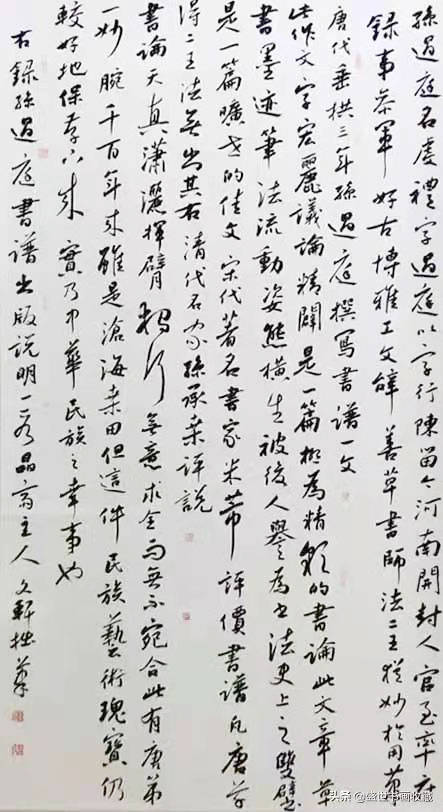 孫過庭名虔禮字過庭以字行陳留今河南開封人官至率府
錄事參軍好古博雅工文辭善草書師法二王極妙於用筆
唐代垂拱三年孫過庭撰寫書譜一文
此作文字宏麗議論精闢是一篇極為精彩的書論此文章與
書墨迹筆法流動姿態橫生被後人譽為書法史上之雙璧
是一篇曠世的佳文宋代著名書家米芾評價書譜凡唐草
得二王法無出其右清代名家孫承業評說
書論天真瀟灑揮臂獨行無意求全而無不宛合此有唐第
一妙腕千百年來雖是滄海桑田但這件民族藝術瑰寶仍
較好地保存下來實乃中華民族之幸事也
右錄孫過庭書譜出版說明晶齋主人文軒拙筆
头条 @盛世书画收藏